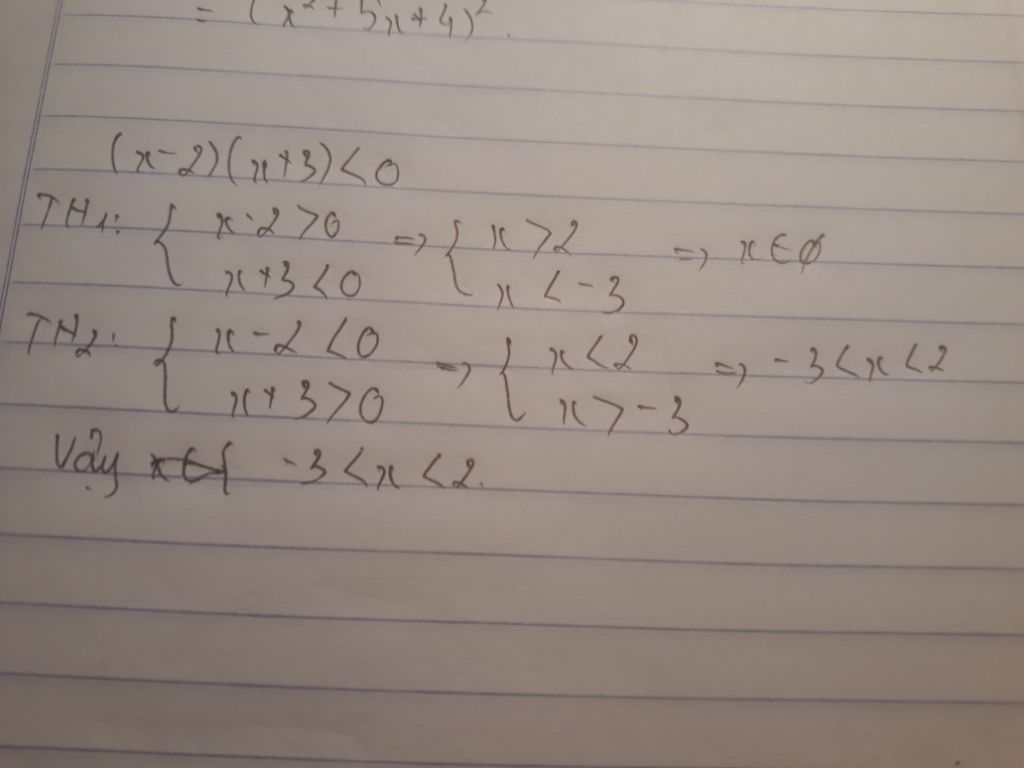 = (x² + 5x + 4)².
(x - 2)(x + 3) < 0
TH1: { x - 2 > 0 => { x > 2 => x ∈ ∅
x + 3 < 0 x < -3
TH2: { x - 2 < 0 => { x < 2 => -3 < x < 2
x + 3 > 0 x > -3
Vậy -3 < x < 2.